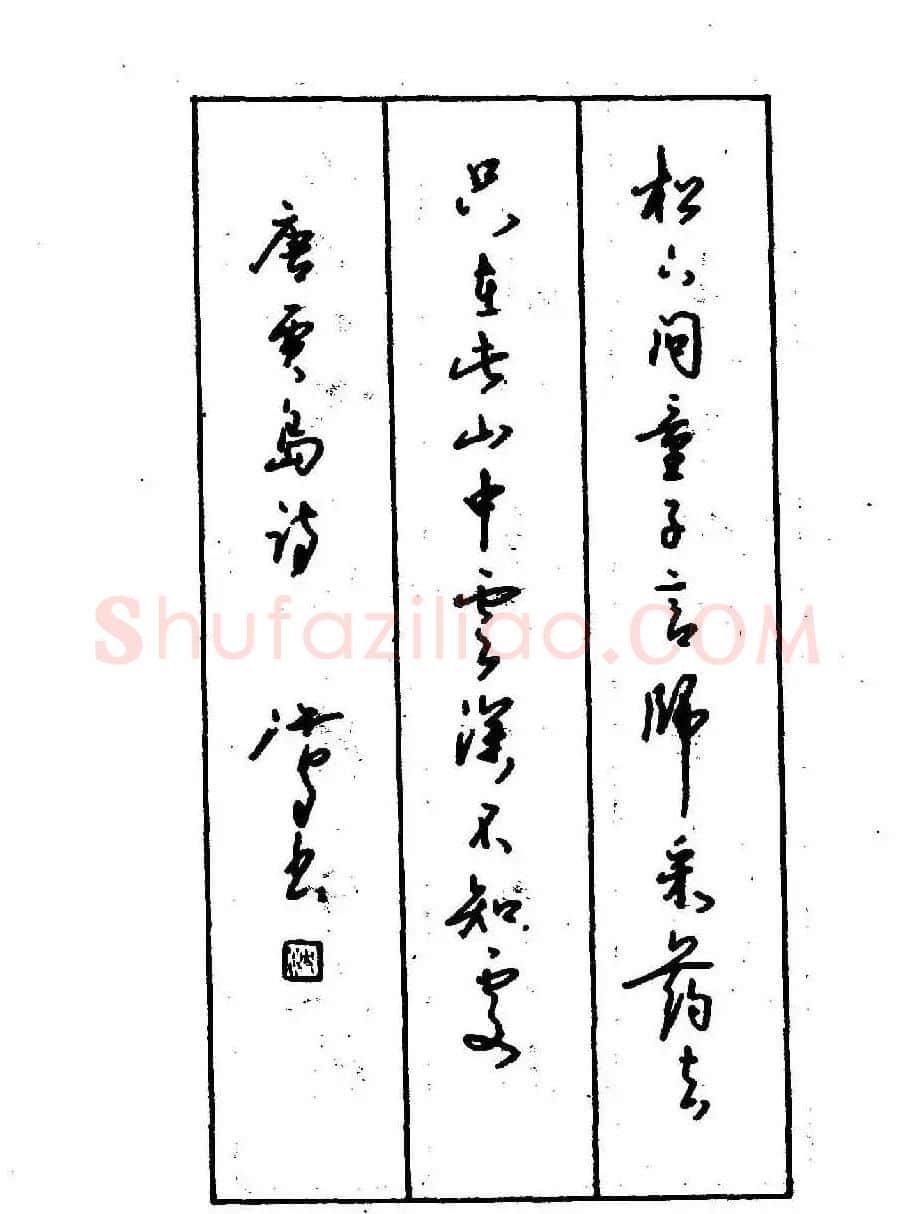 松下问童子言师采药去
只在此山中云深不知处
唐贾岛诗 书
Shufaziliao.COM